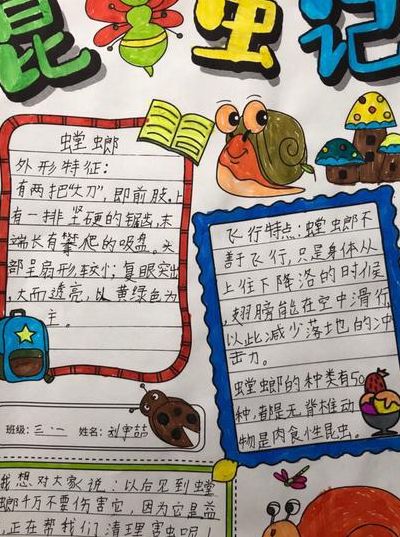 昆虫记
螳螂
外形特征：
有两把“大刀”，即前肢，上
有一排坚硬的锯齿，末
端长有攀爬的吸盘。头
部呈扇形较小；复眼突出
，大而透亮，以黄绿色为
主。
飞行特点：螳螂不
善于飞行，只是身体从
上往下降落的时候
，翅膀能在空中滑行，
以此减少落地的冲
击力。
螳螂的种类有50
种，都是无脊椎动
物是肉食性昆虫。
班级：三·一 姓名：
我想对大家说：以后见到螳
螂千万不要伤害它，因为它是益
，正在帮我们清理害虫呢！